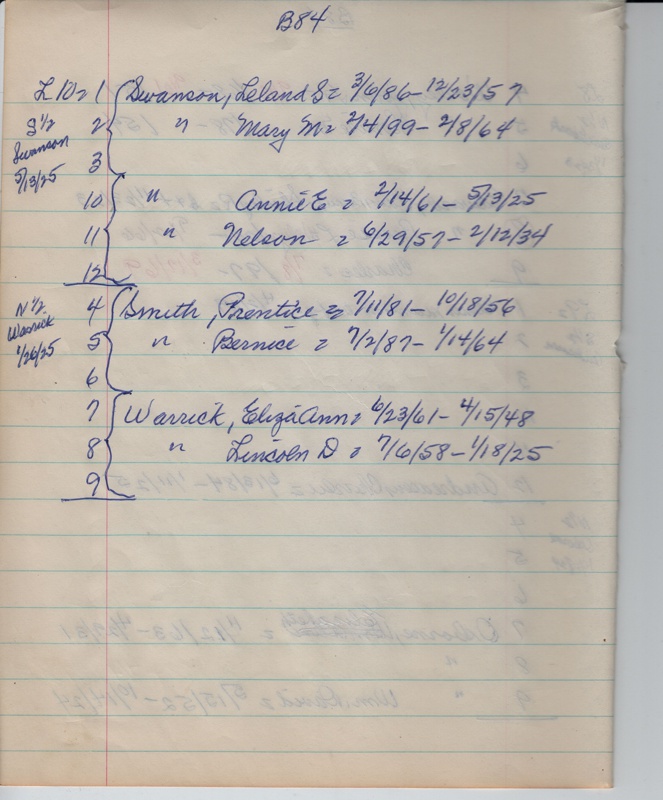 B84
L 10 = 1 Swanson, Leland S = 3/6/86 - 12/23/57
S 1/2 2 " Mary M = 2/4/99 - 2/8/64
Swanson 3
5/13/25
10 " Annie E = 2/14/61 - 5/13/25
11 " Nelson = 6/29/57 - 2/12/34
12
N 1/2 4 Smith, Prentice = 7/11/81 - 10/18/56
Warrick 5 " Bernice = 7/2/87 - 1/14/64
1/26/25
6
7 Warrick, Eliza Ann = 6/23/61 - 4/15/48
8 " Lincoln D = 7/6/58 - 1/18/25
9